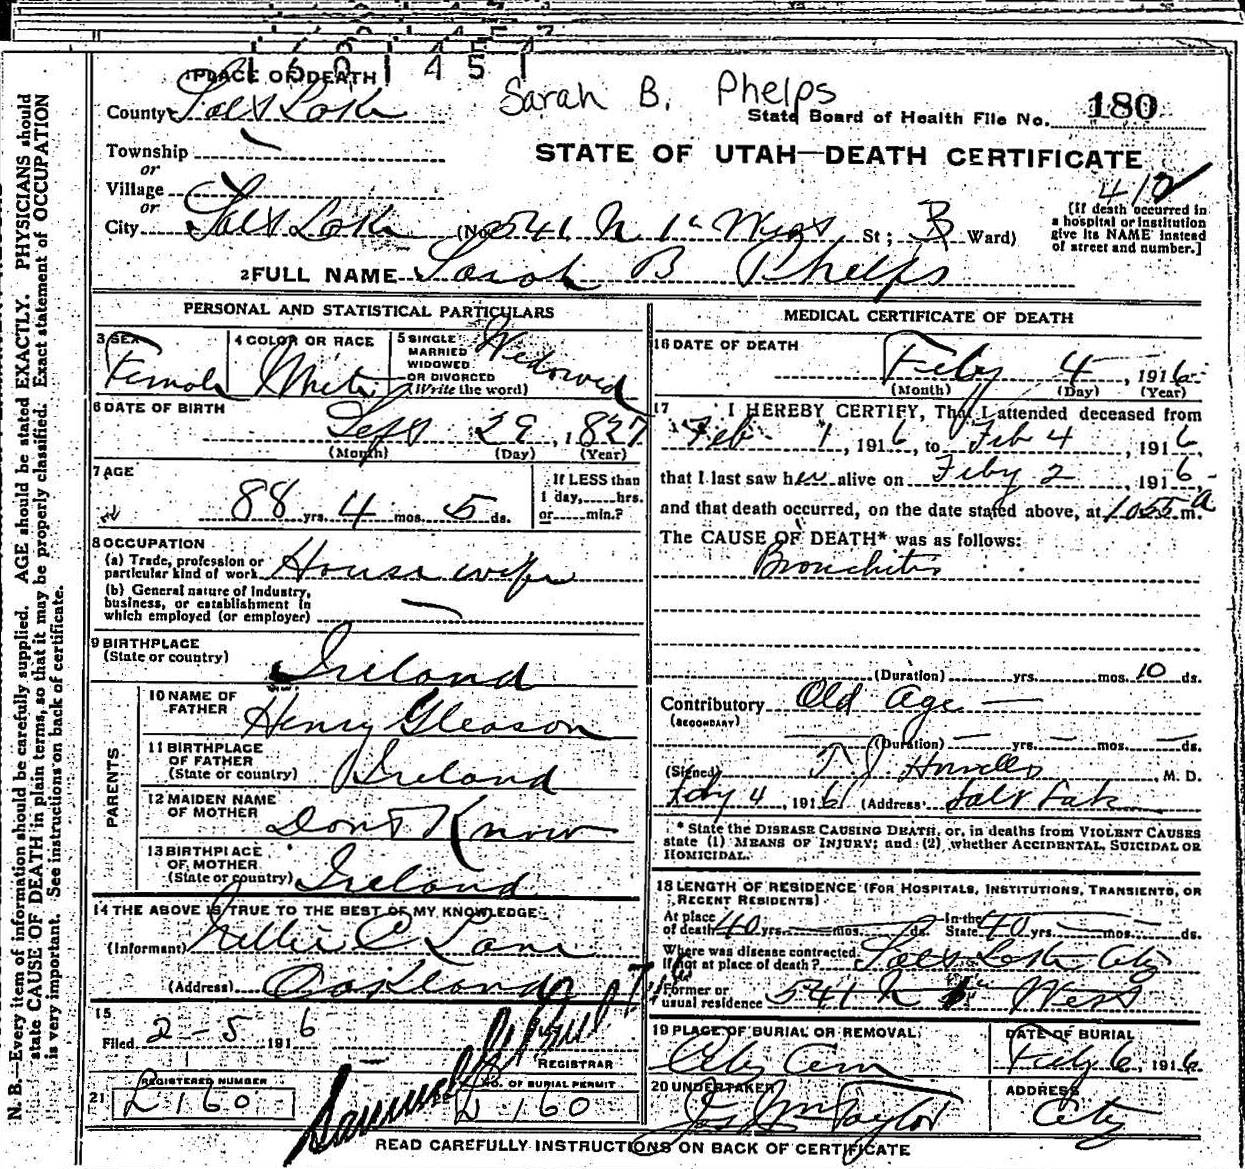 1601457
Sarah B. Phelps
1 PLACE OF DEATH
County Salt Lake
State Board of Health File No. 180
Township
or
STATE OF UTAH—DEATH CERTIFICATE
Village
or
City Salt Lake (No. 541 N 1st West St; Ward)
[If death occurred in a hospital or institution give its NAME instead of street and number.]
2 FULL NAME Sarah B Phelps
PERSONAL AND STATISTICAL PARTICULARS
3 SEX Female
4 COLOR OR RACE White
5 SINGLE MARRIED WIDOWED OR DIVORCED (Write the word) Widowed
6 DATE OF BIRTH Sept 29, 1827
(Month) (Day) (Year)
7 AGE 88 yrs. 4 mos. 5 ds.
If LESS than 1 day, hrs. or min.?
8 OCCUPATION
(a) Trade, profession or particular kind of work House wife
(b) General nature of Industry, business, or establishment in which employed (or employer)
9 BIRTHPLACE (State or country) Ireland
PARENTS
10 NAME OF FATHER Henry Gleason
11 BIRTHPLACE OF FATHER (State or country) Ireland
12 MAIDEN NAME OF MOTHER Dont Know
13 BIRTHPLACE OF MOTHER (State or country) Ireland
14 THE ABOVE IS TRUE TO THE BEST OF MY KNOWLEDGE
(Informant) Nellie C Lane
(Address) Oakland
15
Filed 2-5 1916
REGISTRAR
21 REGISTERED NUMBER L 160
NO. OF BURIAL PERMIT L 160
MEDICAL CERTIFICATE OF DEATH
16 DATE OF DEATH
Feby 4, 1916
(Month) (Day) (Year)
17 I HEREBY CERTIFY, That I attended deceased from
Feb 1, 1916, to Feb 4, 1916,
that I last saw her alive on Feby 2, 1916,
and that death occurred, on the date stated above, at 1055 A m.
The CAUSE OF DEATH* was as follows:
Bronchitis
(Duration) yrs. mos. 10 ds.
Contributory Old Age
(SECONDARY)
(Duration) yrs. mos. ds.
(Signed) T. J. Howells, M. D.
Feby 4, 1916 (Address) Salt Lake
* State the DISEASE CAUSING DEATH, or, in deaths from VIOLENT CAUSES state (1) MEANS OF INJURY; and (2) whether ACCIDENTAL, SUICIDAL OR HOMICIDAL.
18 LENGTH OF RESIDENCE (FOR HOSPITALS, INSTITUTIONS, TRANSIENTS, OR RECENT RESIDENTS)
At place of death 40 yrs. mos. ds. In the State 40 yrs. mos. ds.
Where was disease contracted If not at place of death? Salt Lake City
Former or usual residence 541 N 1st West
19 PLACE OF BURIAL OR REMOVAL City Cem
DATE OF BURIAL Feby 6, 1916
20 UNDERTAKER Jos Wm Taylor
ADDRESS City
READ CAREFULLY INSTRUCTIONS ON BACK OF CERTIFICATE
N. B.—Every item of information should be carefully supplied. AGE should be stated EXACTLY. PHYSICIANS should
state CAUSE OF DEATH in plain terms, so that it may be properly classified. Exact statement of OCCUPATION
is very important. See instructions on back of certificate.